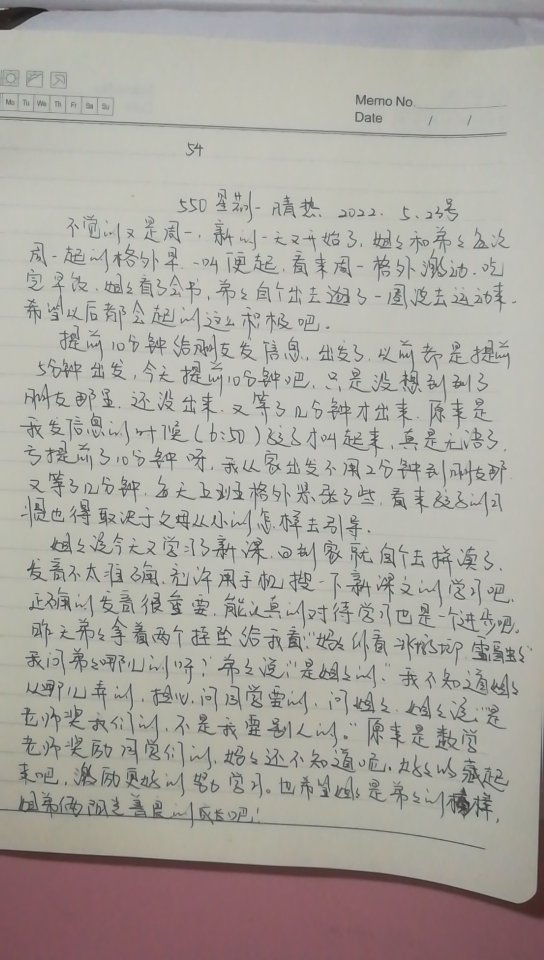 Mo Tu We Th Fr Sa Su
Memo No.
Date / /
54
550 星期一 晴热 2022. 5. 23号
不觉的又是周一,新的一天又开始了,姐姐和弟弟每次
周一起的格外早,一叫便起,看来周一格外激动,吃
完早饭,姐姐看了会书,弟弟自个出去遛了一圈说去运动来,
希望以后都会起的这么积极吧。
提前10分钟给朋友发信息,出发了,以前都是提前
5分钟出发,今天提前10分钟吧,只是没想到到了
朋友那里,还没出来,又等了12分钟才出来,原来是
我发信息的时候(6:50)孩子才叫起来,真是无语了,
亏提前了10分钟呀,我从家出发不用2分钟到朋友那
又等了12分钟,每天五到五格外紧张了些,看来孩子的习
惯也得取决于父母从小的怎样去引导。
姐姐说今天又学习了新课,回到家就自个去拼读了,
发音不太准确,允许用手机搜一下新课文的学习吧,
正确的发音很重要,能认真的对待学习也是一个进步吧。
昨天弟弟拿着两个挂坠给我看:"妈妈你看冰墩墩 雪容融"
我问弟弟哪儿的呀?弟弟说:"是姐姐的."我不知道姐姐
从哪儿弄的,担心问同学要的,问姐姐,姐姐说:"是
老师奖我们的,不是我要别人的。"原来是数学
老师奖励同学们的,妈妈还不知道呢,好好的藏起
来吧,激励更好的努力学习。也希望姐姐是弟弟的榜样,
姐弟俩朝着善良的成长吧!